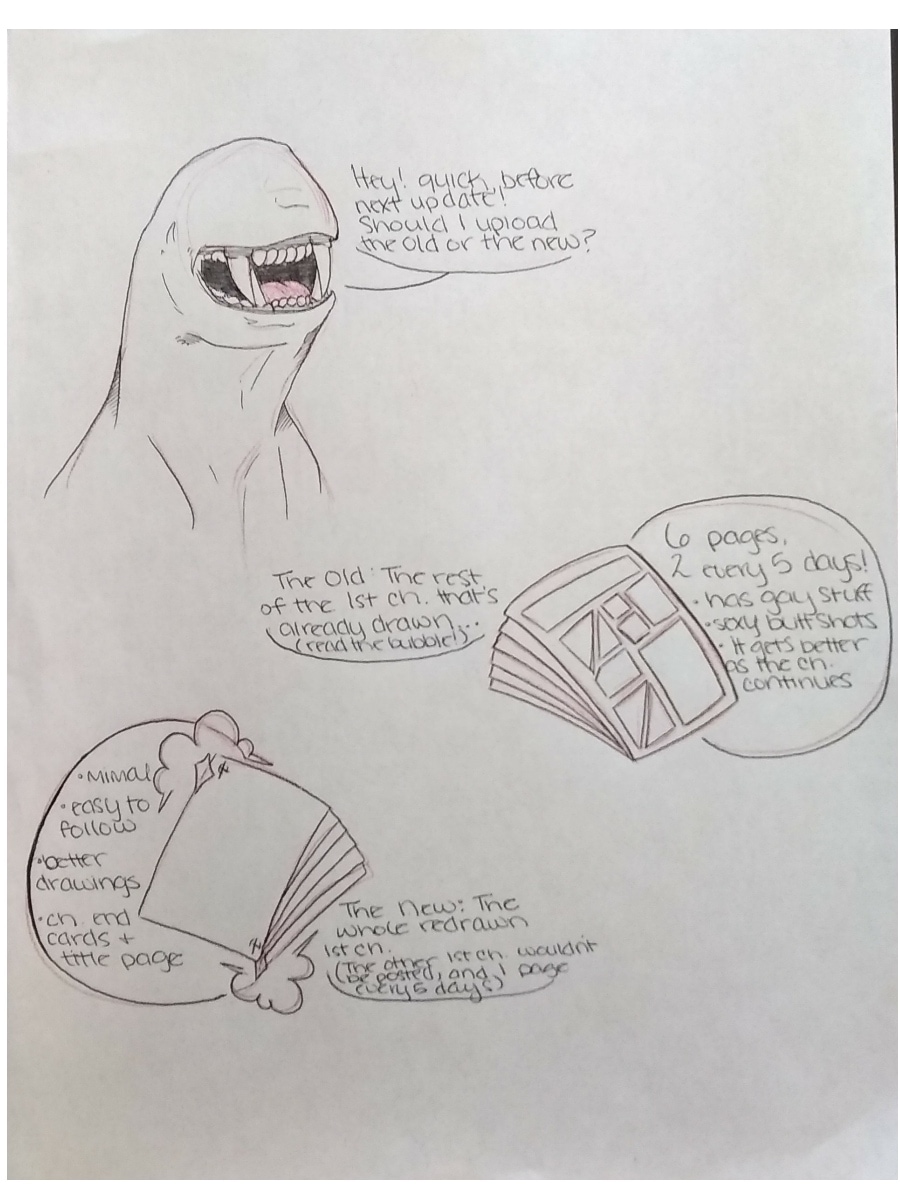 Hey! quick, before
next update!
Should I upload
the old or the new?
The Old: The rest
of the 1st ch. that's
already drawn...
(read the bubble!)
6 pages,
2 every 5 days!
• has gay stuff
• sexy butt shots
• it gets better
as the ch.
continues
• Mimal
• easy to
follow
• better
drawings
• ch. end
cards +
title page
The New: The
whole redrawn
1st ch.
(The other 1st ch. wouldn't
be posted, and 1 page
every 5 days)